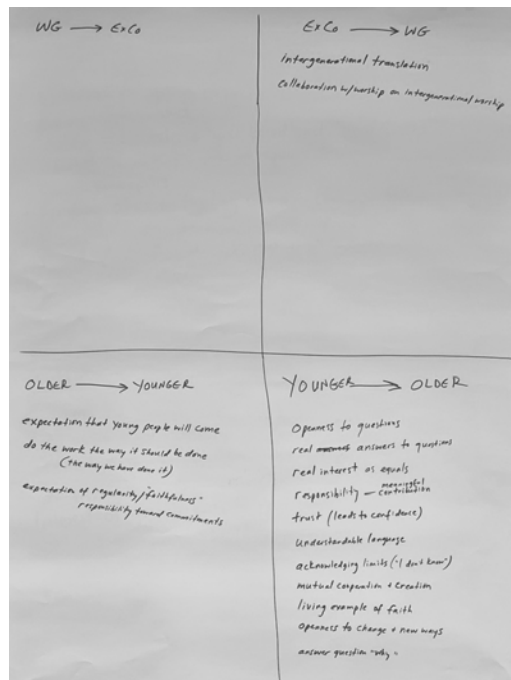 WG → ExCo
ExCo → WG
Intergenerational translation
Collaboration w/worship on intergenerational worship
OLDER → YOUNGER
expectation that young people will come
do the work the way it should be done
(the way we have done it)
expectation of regularity/"faithfulness"
responsibility toward commitments
YOUNGER → OLDER
Openness to questions
real answers to questions
real interest as equals
responsibility – meaningful contribution
trust (leads to confidence)
Understandable language
acknowledging limits ("I don't know")
mutual cooperation + creation
living example of faith
Openness to change + new ways
answer question "why"